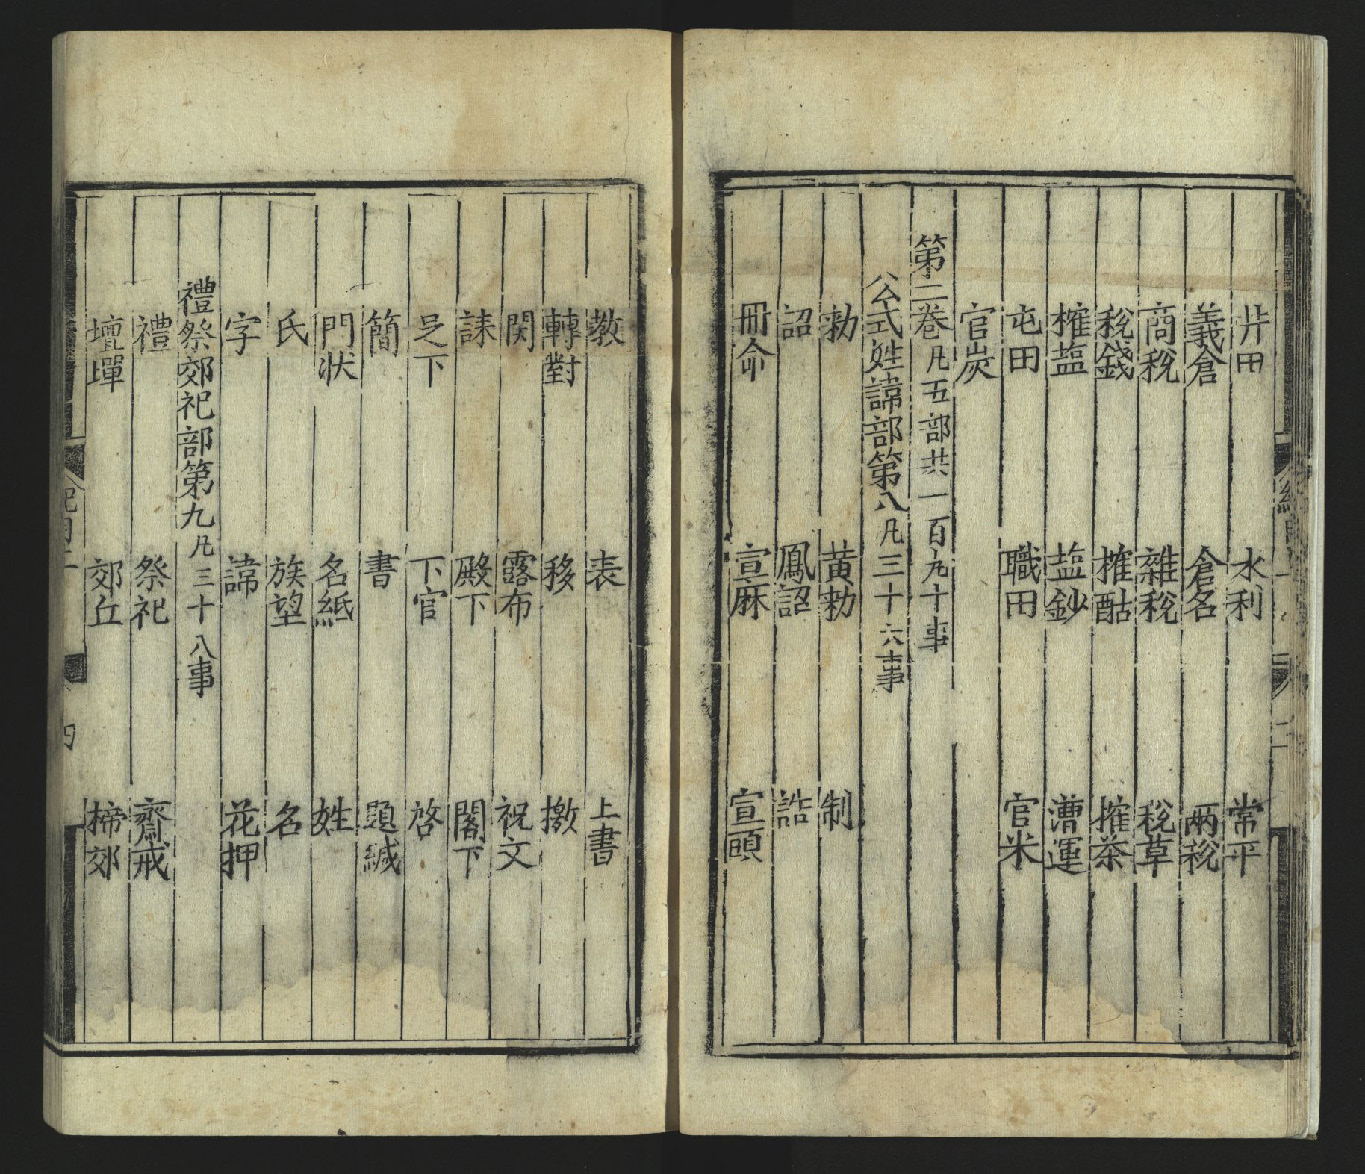 井田　水利　常平
義倉　倉名　兩稅
商稅　雜稅　稅草
稅錢　榷酤　榷茶
榷塩　塩鈔　漕運
屯田　職田　官米
官炭
第二卷凡五部共一百九十事
公式姓諱部第八凡三十六事
勑　黄勑　制
詔　鳳詔　誥
冊命　宣麻　宣頭
教　表　上書
轉對　移　檄
関　露布　祝文
誄　殿下　閣下
足下　下官　啓
簡　書　題緘
門狀　名紙　姓
氏　族望　名
字　諱　花押
禮祭郊祀部第九凡三十八事
禮　祭祀　齋戒
壇墠　郊丘　禘郊
四